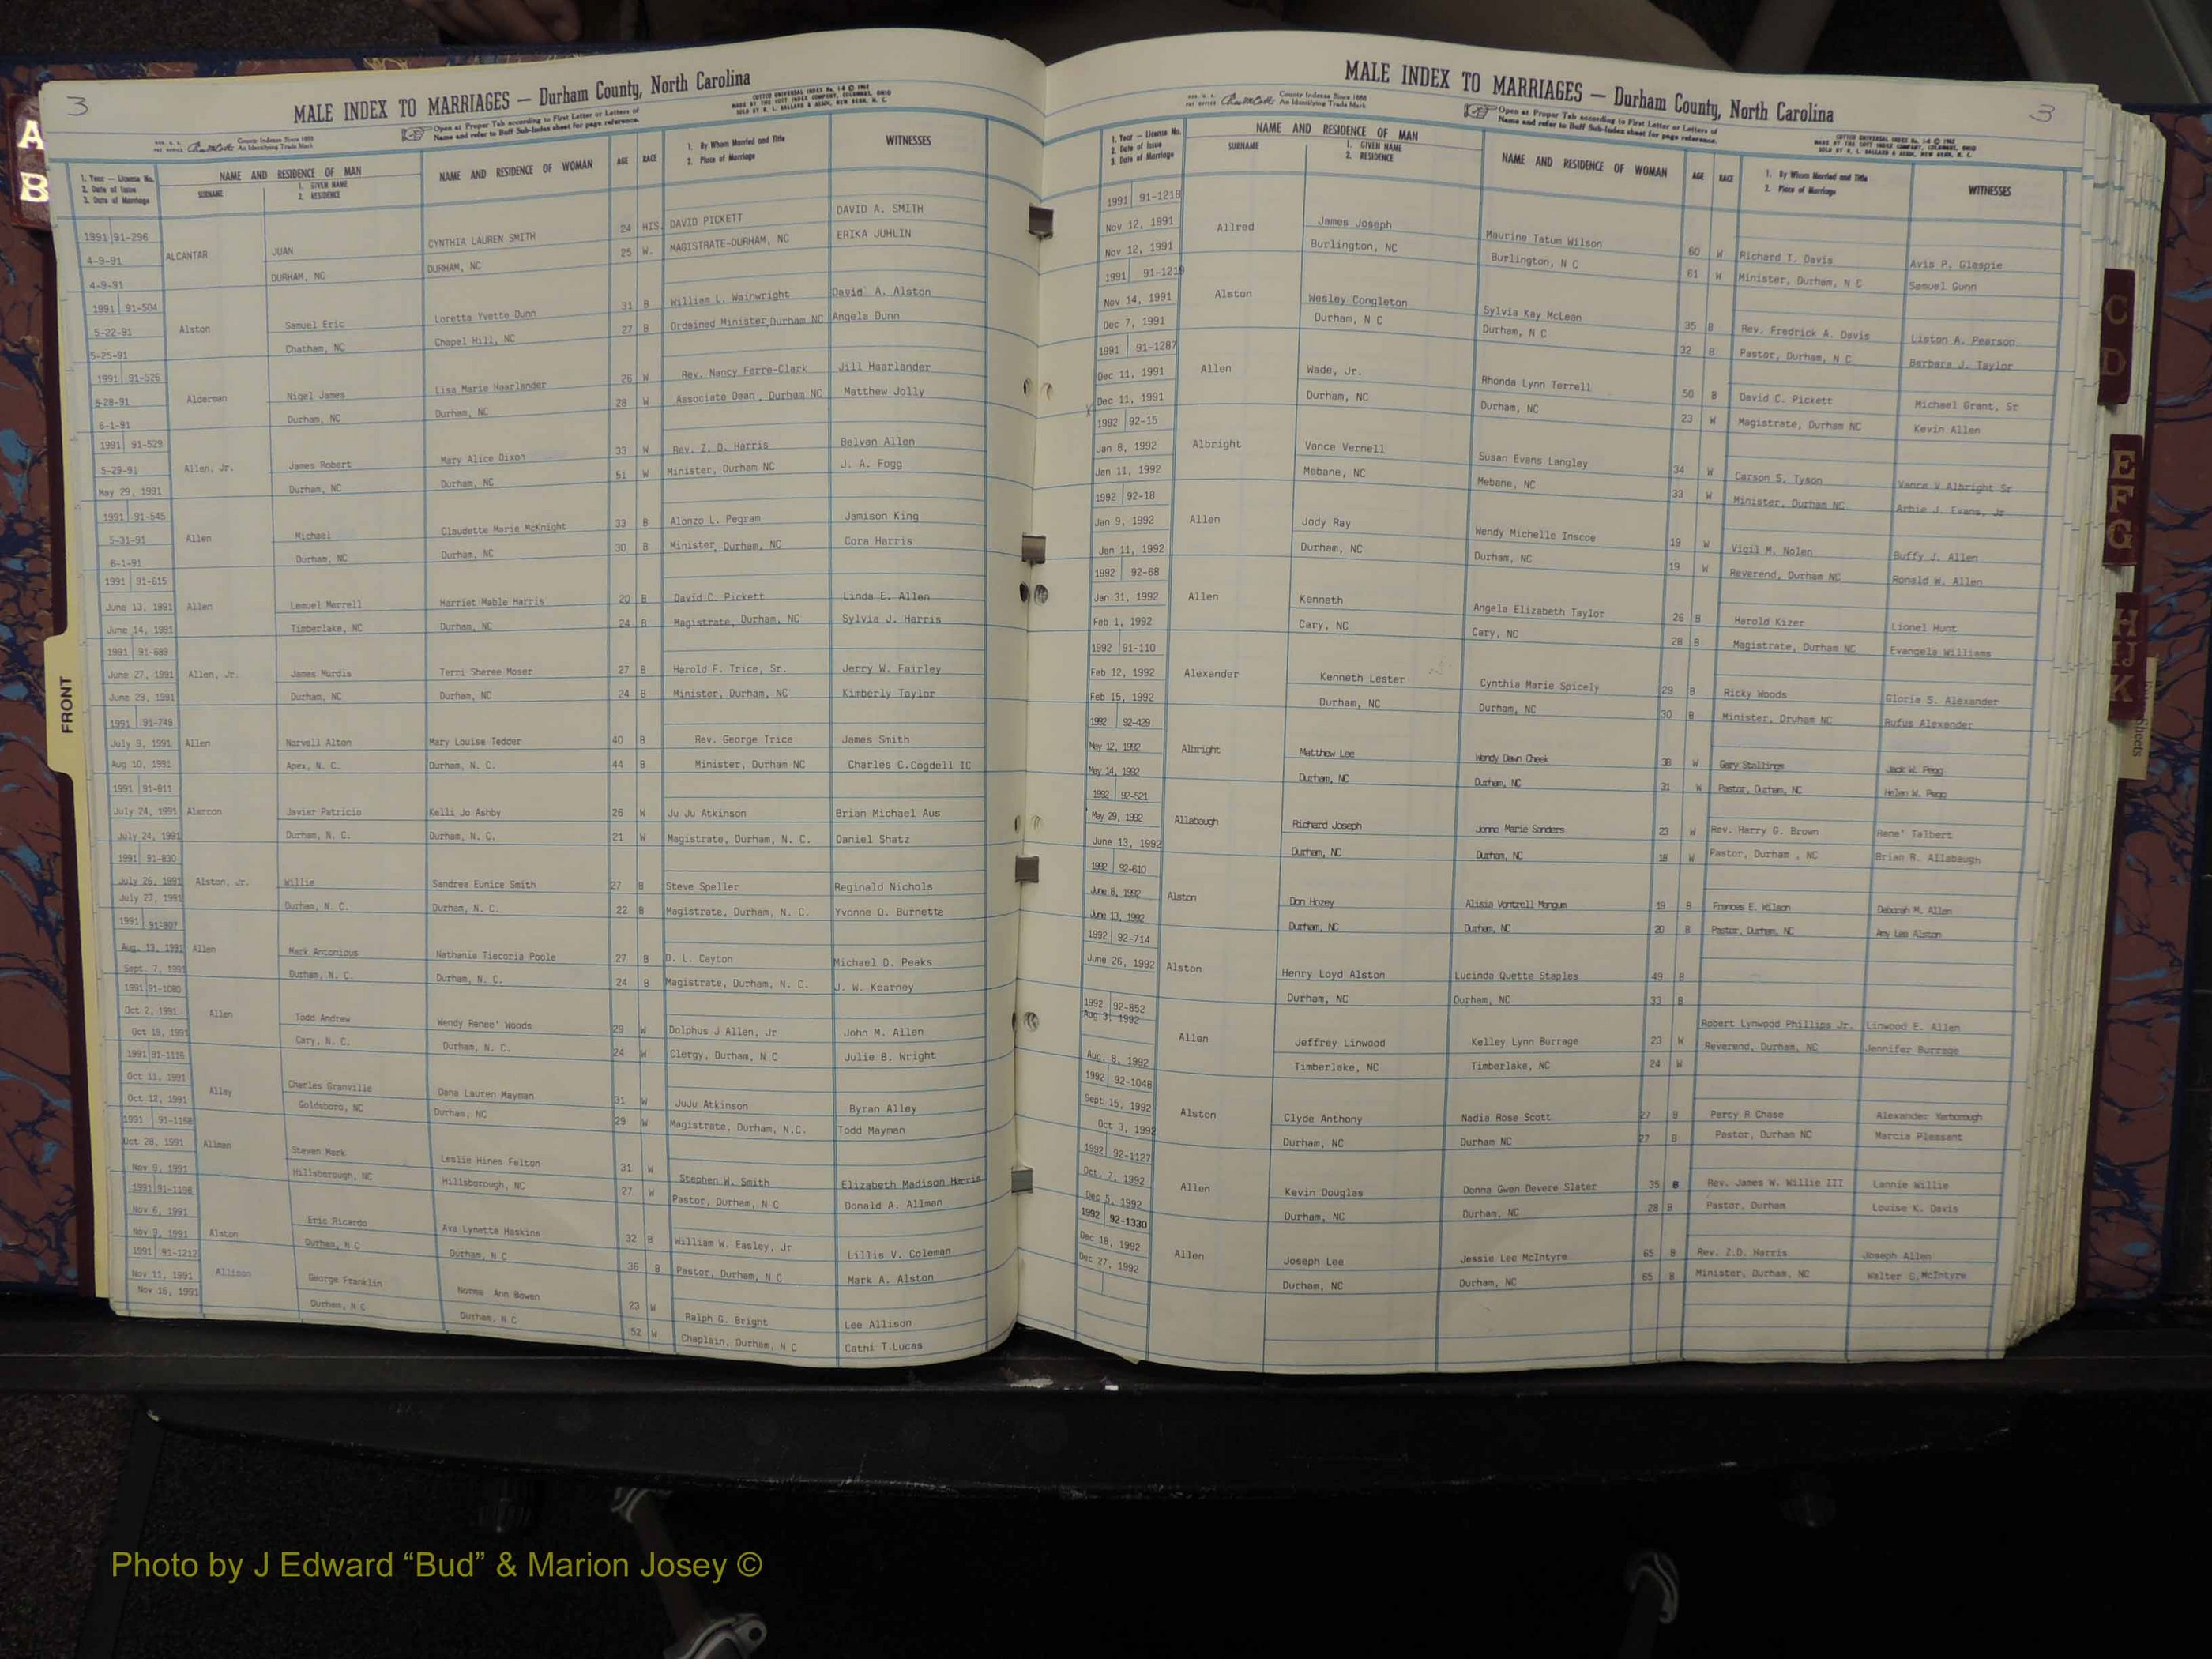 A
B
FRONT
3
MALE INDEX TO MARRIAGES — Durham County, North Carolina
County Indexes Since 1888
An Identifying Trade Mark
Open at Proper Tab according to First Letter or Letters of
Name and refer to Buff Sub-Index sheet for page reference.
COTTED UNIVERSAL INDEX No. 1-6 © 1962
MADE BY THE COTT INDEX COMPANY, COLUMBUS, OHIO
SOLD BY O. L. BALLARD & ASSOC. NEW BERN, N. C.
1. Year — License No.
2. Date of Issue
3. Date of Marriage
NAME AND RESIDENCE OF MAN
SURNAME
1. GIVEN NAME
2. RESIDENCE
NAME AND RESIDENCE OF WOMAN
AGE
RACE
1. By Whom Married and Title
2. Place of Marriage
WITNESSES
1991 91-296
4-9-91 ALCANTAR JUAN CYNTHIA LAUREN SMITH 24 HIS. DAVID PICKETT DAVID A. SMITH
4-9-91 DURHAM, NC DURHAM, NC 25 W. MAGISTRATE-DURHAM, NC ERIKA JUHLIN
1991 91-504
5-22-91 Alston Samuel Eric Loretta Yvette Dunn 31 B William L. Wainwright David A. Alston
5-25-91 Chatham, NC Chapel Hill, NC 27 B Ordained Minister, Durham NC Angela Dunn
1991 91-526
5-28-91 Alderman Nigel James Lisa Marie Haarlander 26 W Rev. Nancy Ferre-Clark Jill Haarlander
6-1-91 Durham, NC Durham, NC 28 W Associate Dean, Durham NC Matthew Jolly
1991 91-529
5-29-91 Allen, Jr. James Robert Mary Alice Dixon 33 W Rev. Z. D. Harris Belvan Allen
May 29, 1991 Durham, NC Durham, NC 51 W Minister, Durham NC J. A. Fogg
1991 91-545
5-31-91 Allen Michael Claudette Marie McKnight 33 B Alonzo L. Pegram Jamison King
6-1-91 Durham, NC Durham, NC 30 B Minister, Durham, NC Cora Harris
1991 91-615
June 13, 1991 Allen Lemuel Merrell Harriet Mable Harris 20 B David C. Pickett Linda E. Allen
June 14, 1991 Timberlake, NC Durham, NC 24 B Magistrate, Durham, NC Sylvia J. Harris
1991 91-689
June 27, 1991 Allen, Jr. James Murdis Terri Sheree Moser 27 B Harold F. Trice, Sr. Jerry W. Fairley
June 29, 1991 Durham, NC Durham, NC 24 B Minister, Durham, NC Kimberly Taylor
1991 91-748
July 9, 1991 Allen Norvell Alton Mary Louise Tedder 40 B Rev. George Trice James Smith
Aug 10, 1991 Apex, N. C. Durham, N. C. 44 B Minister, Durham NC Charles C.Cogdell IC
1991 91-811
July 24, 1991 Alarcon Javier Patricio Kelli Jo Ashby 26 W Ju Ju Atkinson Brian Michael Aus
July 24, 1991 Durham, N. C. Durham, N. C. 21 W Magistrate, Durham, N. C. Daniel Shatz
1991 91-830
July 26, 1991 Alston, Jr. Willie Sandrea Eunice Smith 27 B Steve Speller Reginald Nichols
July 27, 1991 Durham, N. C. Durham, N. C. 22 B Magistrate, Durham, N. C. Yvonne O. Burnette
1991 91-907
Aug. 13, 1991 Allen Mark Antonious Nathania Tiecoria Poole 27 B D. L. Cayton Michael D. Peaks
Sept. 7, 1991 Durham, N. C. Durham, N. C. 24 B Magistrate, Durham, N. C. J. W. Kearney
1991 91-1080
Oct 2, 1991 Allen Todd Andrew Wendy Renee' Woods 29 W Dolphus J Allen, Jr John M. Allen
Oct 19, 1991 Cary, N. C. Durham, N. C. 24 W Clergy, Durham, N C Julie B. Wright
1991 91-1116
Oct 11, 1991 Alley Charles Granville Dana Lauren Mayman 31 W JuJu Atkinson Byran Alley
Oct 12, 1991 Goldsboro, NC Durham, NC 29 W Magistrate, Durham, N.C. Todd Mayman
1991 91-1168
Oct 28, 1991 Allman Steven Mark Leslie Hines Felton 31 W Stephen W. Smith Elizabeth Madison Harris
Nov 9, 1991 Hillsborough, NC Hillsborough, NC 27 W Pastor, Durham, N C Donald A. Allman
1991 91-1198
Nov 6, 1991 Eric Ricardo Ava Lynette Haskins 32 B William W. Easley, Jr Lillis V. Coleman
Nov 9, 1991 Alston Durham, N C Durham, N C 36 B Pastor, Durham, N C Mark A. Alston
1991 91-1212
Nov 11, 1991 Allison George Franklin Norma Ann Bowen 23 W Ralph G. Bright Lee Allison
Nov 16, 1991 Durham, N C Durham, N C 52 W Chaplain, Durham, N C Cathi T.Lucas
3
MALE INDEX TO MARRIAGES — Durham County, North Carolina
County Indexes Since 1888
An Identifying Trade Mark
Open at Proper Tab according to First Letter or Letters of
Name and refer to Buff Sub-Index sheet for page reference.
COTTED UNIVERSAL INDEX No. 1-6 © 1962
MADE BY THE COTT INDEX COMPANY, COLUMBUS, OHIO
SOLD BY O. L. BALLARD & ASSOC. NEW BERN, N. C.
1. Year — License No.
2. Date of Issue
3. Date of Marriage
NAME AND RESIDENCE OF MAN
SURNAME
1. GIVEN NAME
2. RESIDENCE
NAME AND RESIDENCE OF WOMAN
AGE
RACE
1. By Whom Married and Title
2. Place of Marriage
WITNESSES
1991 91-1218
Nov 12, 1991 Allred James Joseph Maurine Tatum Wilson 60 W Richard T. Davis Avis P. Glaspie
Nov 12, 1991 Burlington, NC Burlington, N C 61 W Minister, Durham, N C Samuel Gunn
1991 91-1219
Nov 14, 1991 Alston Wesley Congleton Sylvia Kay McLean 35 B Rev. Fredrick A. Davis Liston A. Pearson
Dec 7, 1991 Durham, N C Durham, N C 32 B Pastor, Durham, N C Barbara J. Taylor
1991 91-1287
Dec 11, 1991 Allen Wade, Jr. Rhonda Lynn Terrell 50 B David C. Pickett Michael Grant, Sr
Dec 11, 1991 Durham, NC Durham, NC 23 W Magistrate, Durham NC Kevin Allen
1992 92-15
Jan 8, 1992 Albright Vance Vernell Susan Evans Langley 34 W Carson S. Tyson Vance V Albright Sr
Jan 11, 1992 Mebane, NC Mebane, NC 33 W Minister, Durham NC Arbie J. Evans, Jr
1992 92-18
Jan 9, 1992 Allen Jody Ray Wendy Michelle Inscoe 19 W Vigil M. Nolen Buffy J. Allen
Jan 11, 1992 Durham, NC Durham, NC 19 W Reverend, Durham NC Ronald W. Allen
1992 92-68
Jan 31, 1992 Allen Kenneth Angela Elizabeth Taylor 26 B Harold Kizer Lionel Hunt
Feb 1, 1992 Cary, NC Cary, NC 28 B Magistrate, Durham NC Evangela Williams
1992 91-110
Feb 12, 1992 Alexander Kenneth Lester Cynthia Marie Spicely 29 B Ricky Woods Gloria S. Alexander
Feb 15, 1992 Durham, NC Durham, NC 30 B Minister, Druham NC Rufus Alexander
1992 92-429
May 12, 1992 Albright Matthew Lee Wendy Dawn Cheek 38 W Gary Stallings Jack W. Pegg
May 14, 1992 Durham, NC Durham, NC 31 W Pastor, Durham, NC Helen W. Pegg
1992 92-521
May 29, 1992 Allabaugh Richard Joseph Jenne Marie Sanders 23 W Rev. Harry G. Brown Rene' Talbert
June 13, 1992 Durham, NC Durham, NC 18 W Pastor, Durham , NC Brian R. Allabaugh
1992 92-610
June 8, 1992 Alston Don Hozey Alisia Vontrell Mangum 19 B Frances E. Wilson Deborah M. Allen
June 13, 1992 Durham, NC Durham, NC 20 B Pastor, Durham, NC Amy Lee Alston
1992 92-714
June 26, 1992 Alston Henry Loyd Alston Lucinda Quette Staples 49 B
Durham, NC Durham, NC 33 B
1992 92-852
Aug 3, 1992 Allen Jeffrey Linwood Kelley Lynn Burrage 23 W Robert Lynwood Phillips Jr. Linwood E. Allen
Aug. 8, 1992 Timberlake, NC Timberlake, NC 24 W Reverend, Durham, NC Jennifer Burrage
1992 92-1048
Sept 15, 1992 Alston Clyde Anthony Nadia Rose Scott 27 B Percy R Chase Alexander Yarborough
Oct 3, 1992 Durham, NC Durham NC 27 B Pastor, Durham NC Marcia Pleasant
1992 92-1127
Oct. 7, 1992 Allen Kevin Douglas Donna Gwen Devere Slater 35 B Rev. James W. Willie III Lannie Willie
Dec 5, 1992 Durham, NC Durham, NC 28 B Pastor, Durham Louise K. Davis
1992 92-1330
Dec 18, 1992 Allen Joseph Lee Jessie Lee McIntyre 65 B Rev. Z.D. Harris Joseph Allen
Dec 27, 1992 Durham, NC Durham, NC 65 B Minister, Durham, NC Walter G.McIntyre
C
D
E
F
G
H
IJ
K
Sheets
Photo by J Edward “Bud” & Marion Josey ©